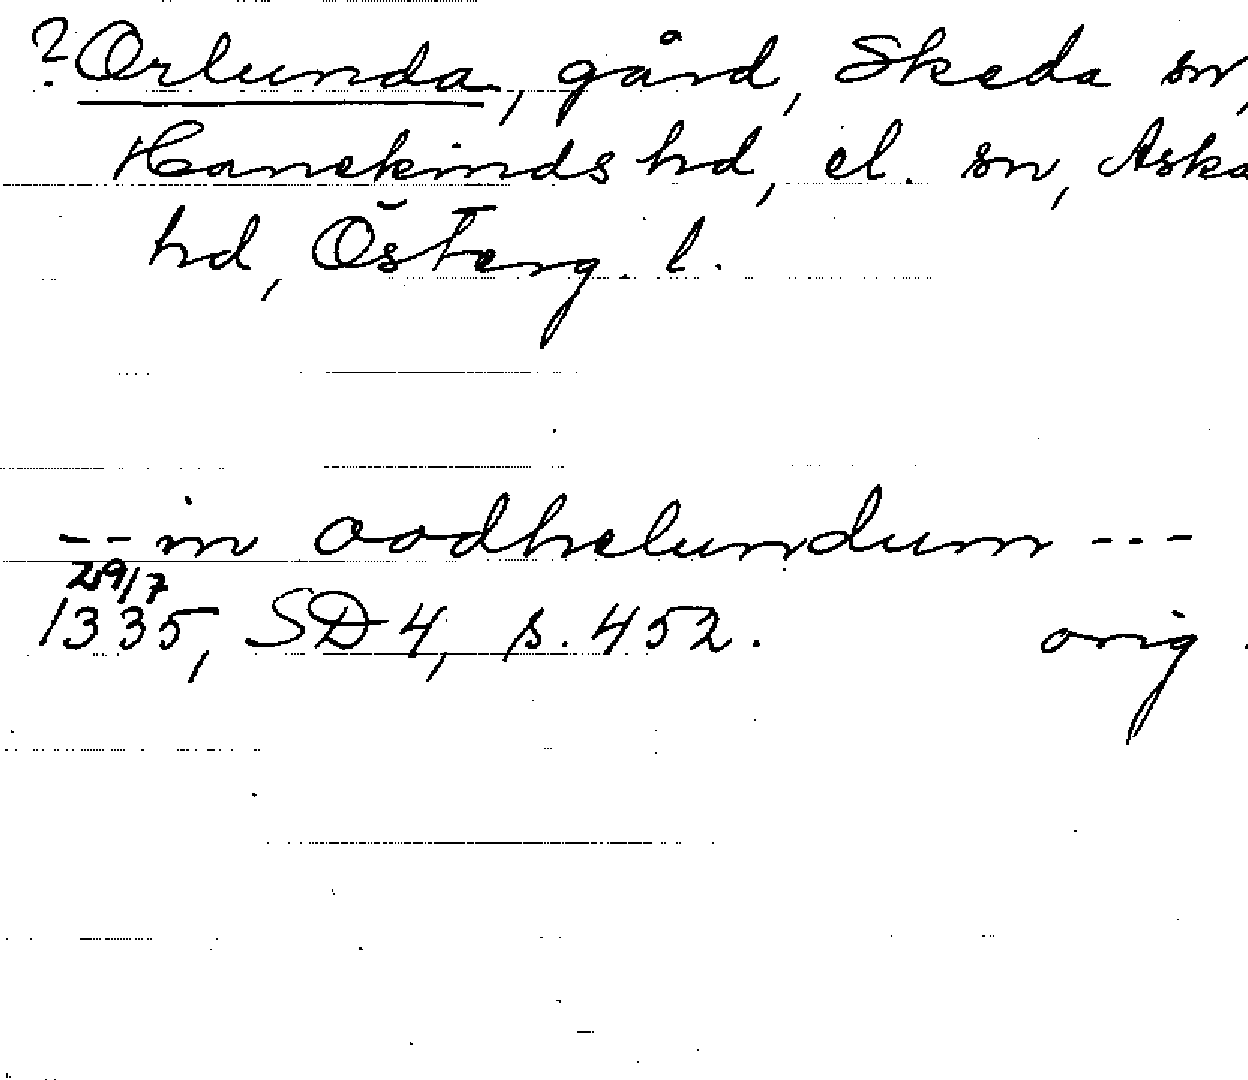 ?Orlunda, gård, Skeda sn,
Hanekinds hd, el. sn, Aska
hd, Österg. l.
-- in oodhelundum ---
29/7
1335, SD 4, s. 452. orig.